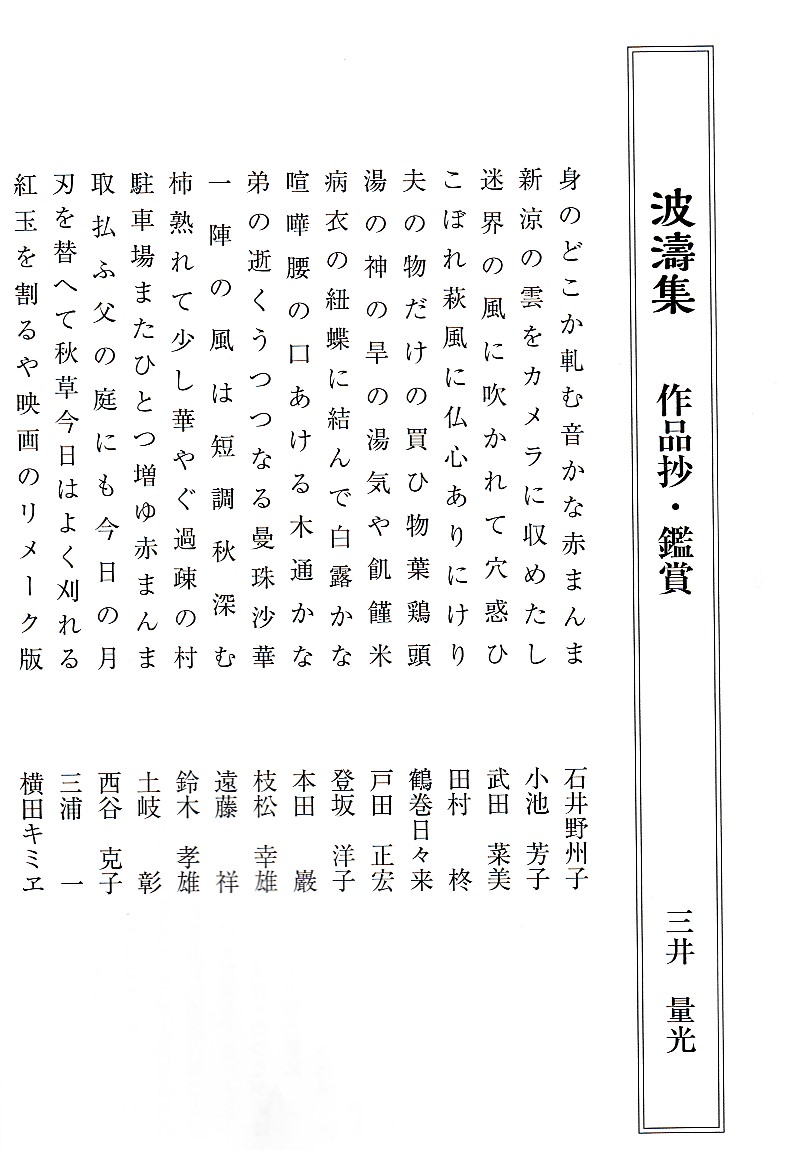 波濤集　作品抄・鑑賞　三井　量光
身のどこか軋む音かな赤まんま　石井野州子
新涼の雲をカメラに収めたし　小池　芳子
迷界の風に吹かれて穴惑ひ　武田　菜美
こぼれ萩風に仏心ありにけり　田村　柊
夫の物だけの買ひ物葉鶏頭　鶴巻日々来
湯の神の旱の湯気や飢饉米　戸田　正宏
病衣の紐蝶に結んで白露かな　登坂　洋子
喧嘩腰の口あける木通かな　本田　巖
弟の逝くうつつなる曼珠沙華　枝松　幸雄
一陣の風は短調秋深む　遠藤　祥
柿熟れて少し華やぐ過疎の村　鈴木　孝雄
駐車場またひとつ増ゆ赤まんま　土岐　彰
取払ふ父の庭にも今日の月　西谷　克子
刃を替へて秋草今日はよく刈れる　三浦　一
紅玉を割るや映画のリメーク版　横田キミヱ